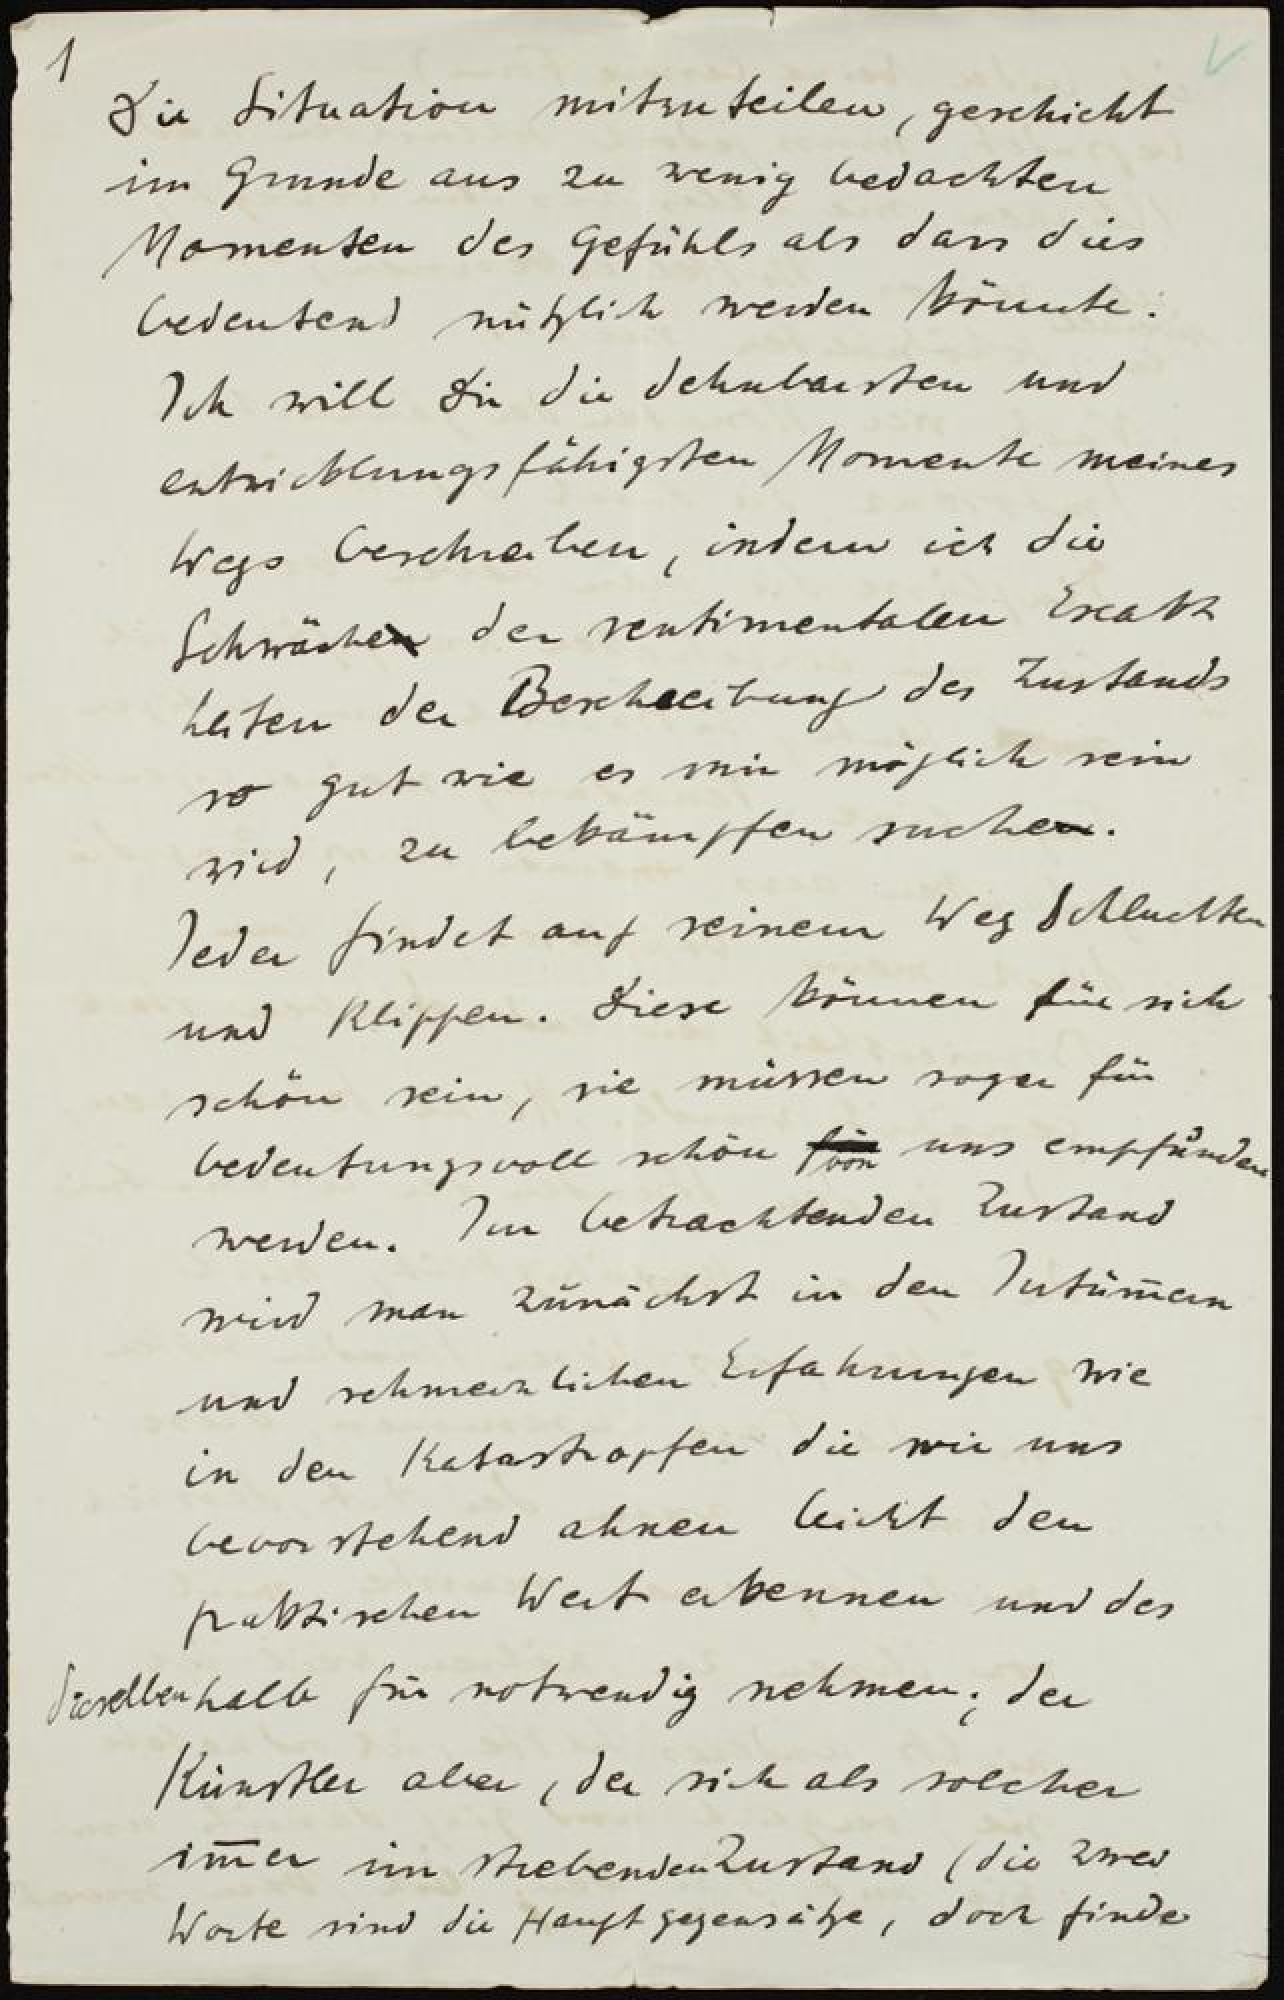 1
Die Situation mitzuteilen, geschieht
im Grunde aus zu wenig bedachten
Momenten des Gefühls als dass dies
bedeutend nützlich werden könnte:
Ich will Dir die dehnbarsten und
entwicklungsfähigsten Momente meines
Wegs beschreiben, indem ich die
Schwäche der sentimentalen Exakt
heiten der Beschreibung des Zustands
so gut wie es mir möglich sein
wird, zu bekämpfen suche.
Jeder findet auf seinem Weg Schluchten
und Klippen. Diese können für sich
schön sein, sie müssen sogar für
bedeutungsvoll schön von uns empfunden
werden. Im betrachtenden Zustand
wird man zunächst in den Intimern
und schmerzlichen Erfahrungen wie
in den Katastropfen die wir uns
bevorstehend ahnen leicht den
praktischen Wert erkennen und des
dieselben halb für notwendig nehmen; der
Künstler aber, der sich als solcher
im̅er im strebenden Zustand (die zwei
Worte sind die Hauptgegensätze, doch finde